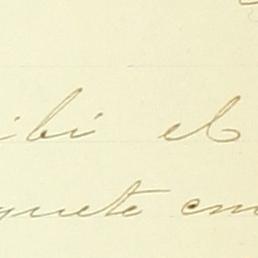 ibi el
quete em